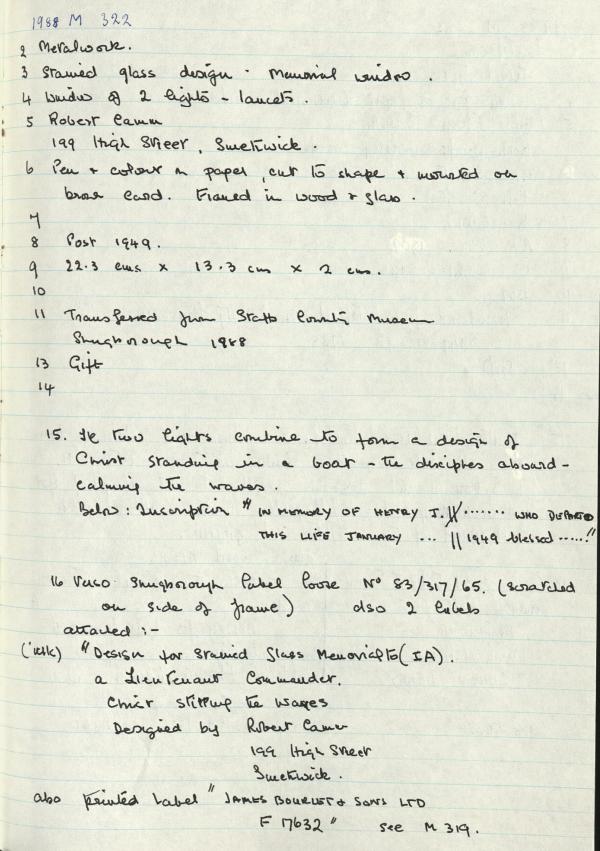 1988 M 322
2 Metalwork.
3 Stained glass design - Memorial window.
4 Window of 2 lights - lancets.
5 Robert Camm
199 High Street, Smethwick.
6 Pen + colour on paper, cut to shape + mounted on
brown card. Framed in wood + glass.
7
8 Post 1949.
9 22.3 cms x 13.3 cms x 2 cms.
10
11 Transferred from Staffs County Museum
Shugborough 1988
13 Gift
14
15. The two lights combine to form a design of
Christ standing in a boat - the disciples aboard -
calming the waves.
Below: Inscription "IN MEMORY OF HENRY J. // ....... WHO DEPARTED
THIS LIFE JANUARY ... || 1949 blessed ......"
16 Verso Shugborough label loose No 83/317/65. (scratched
on side of frame) also 2 labels
attached :-
(ink) "Design for Stained Glass Memorial to (IA).
a Lieutenant Commander.
Christ stilling the waves
Designed by Robert Camm
199 High Street
Smethwick.
also printed label "JAMES BOURLET & SONS LTD
F 17632" see M 319.